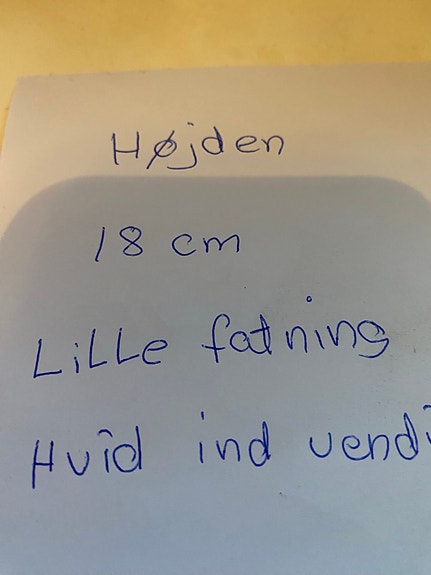 Højden
18 cm
Lille fatning
Hvid ind vendi